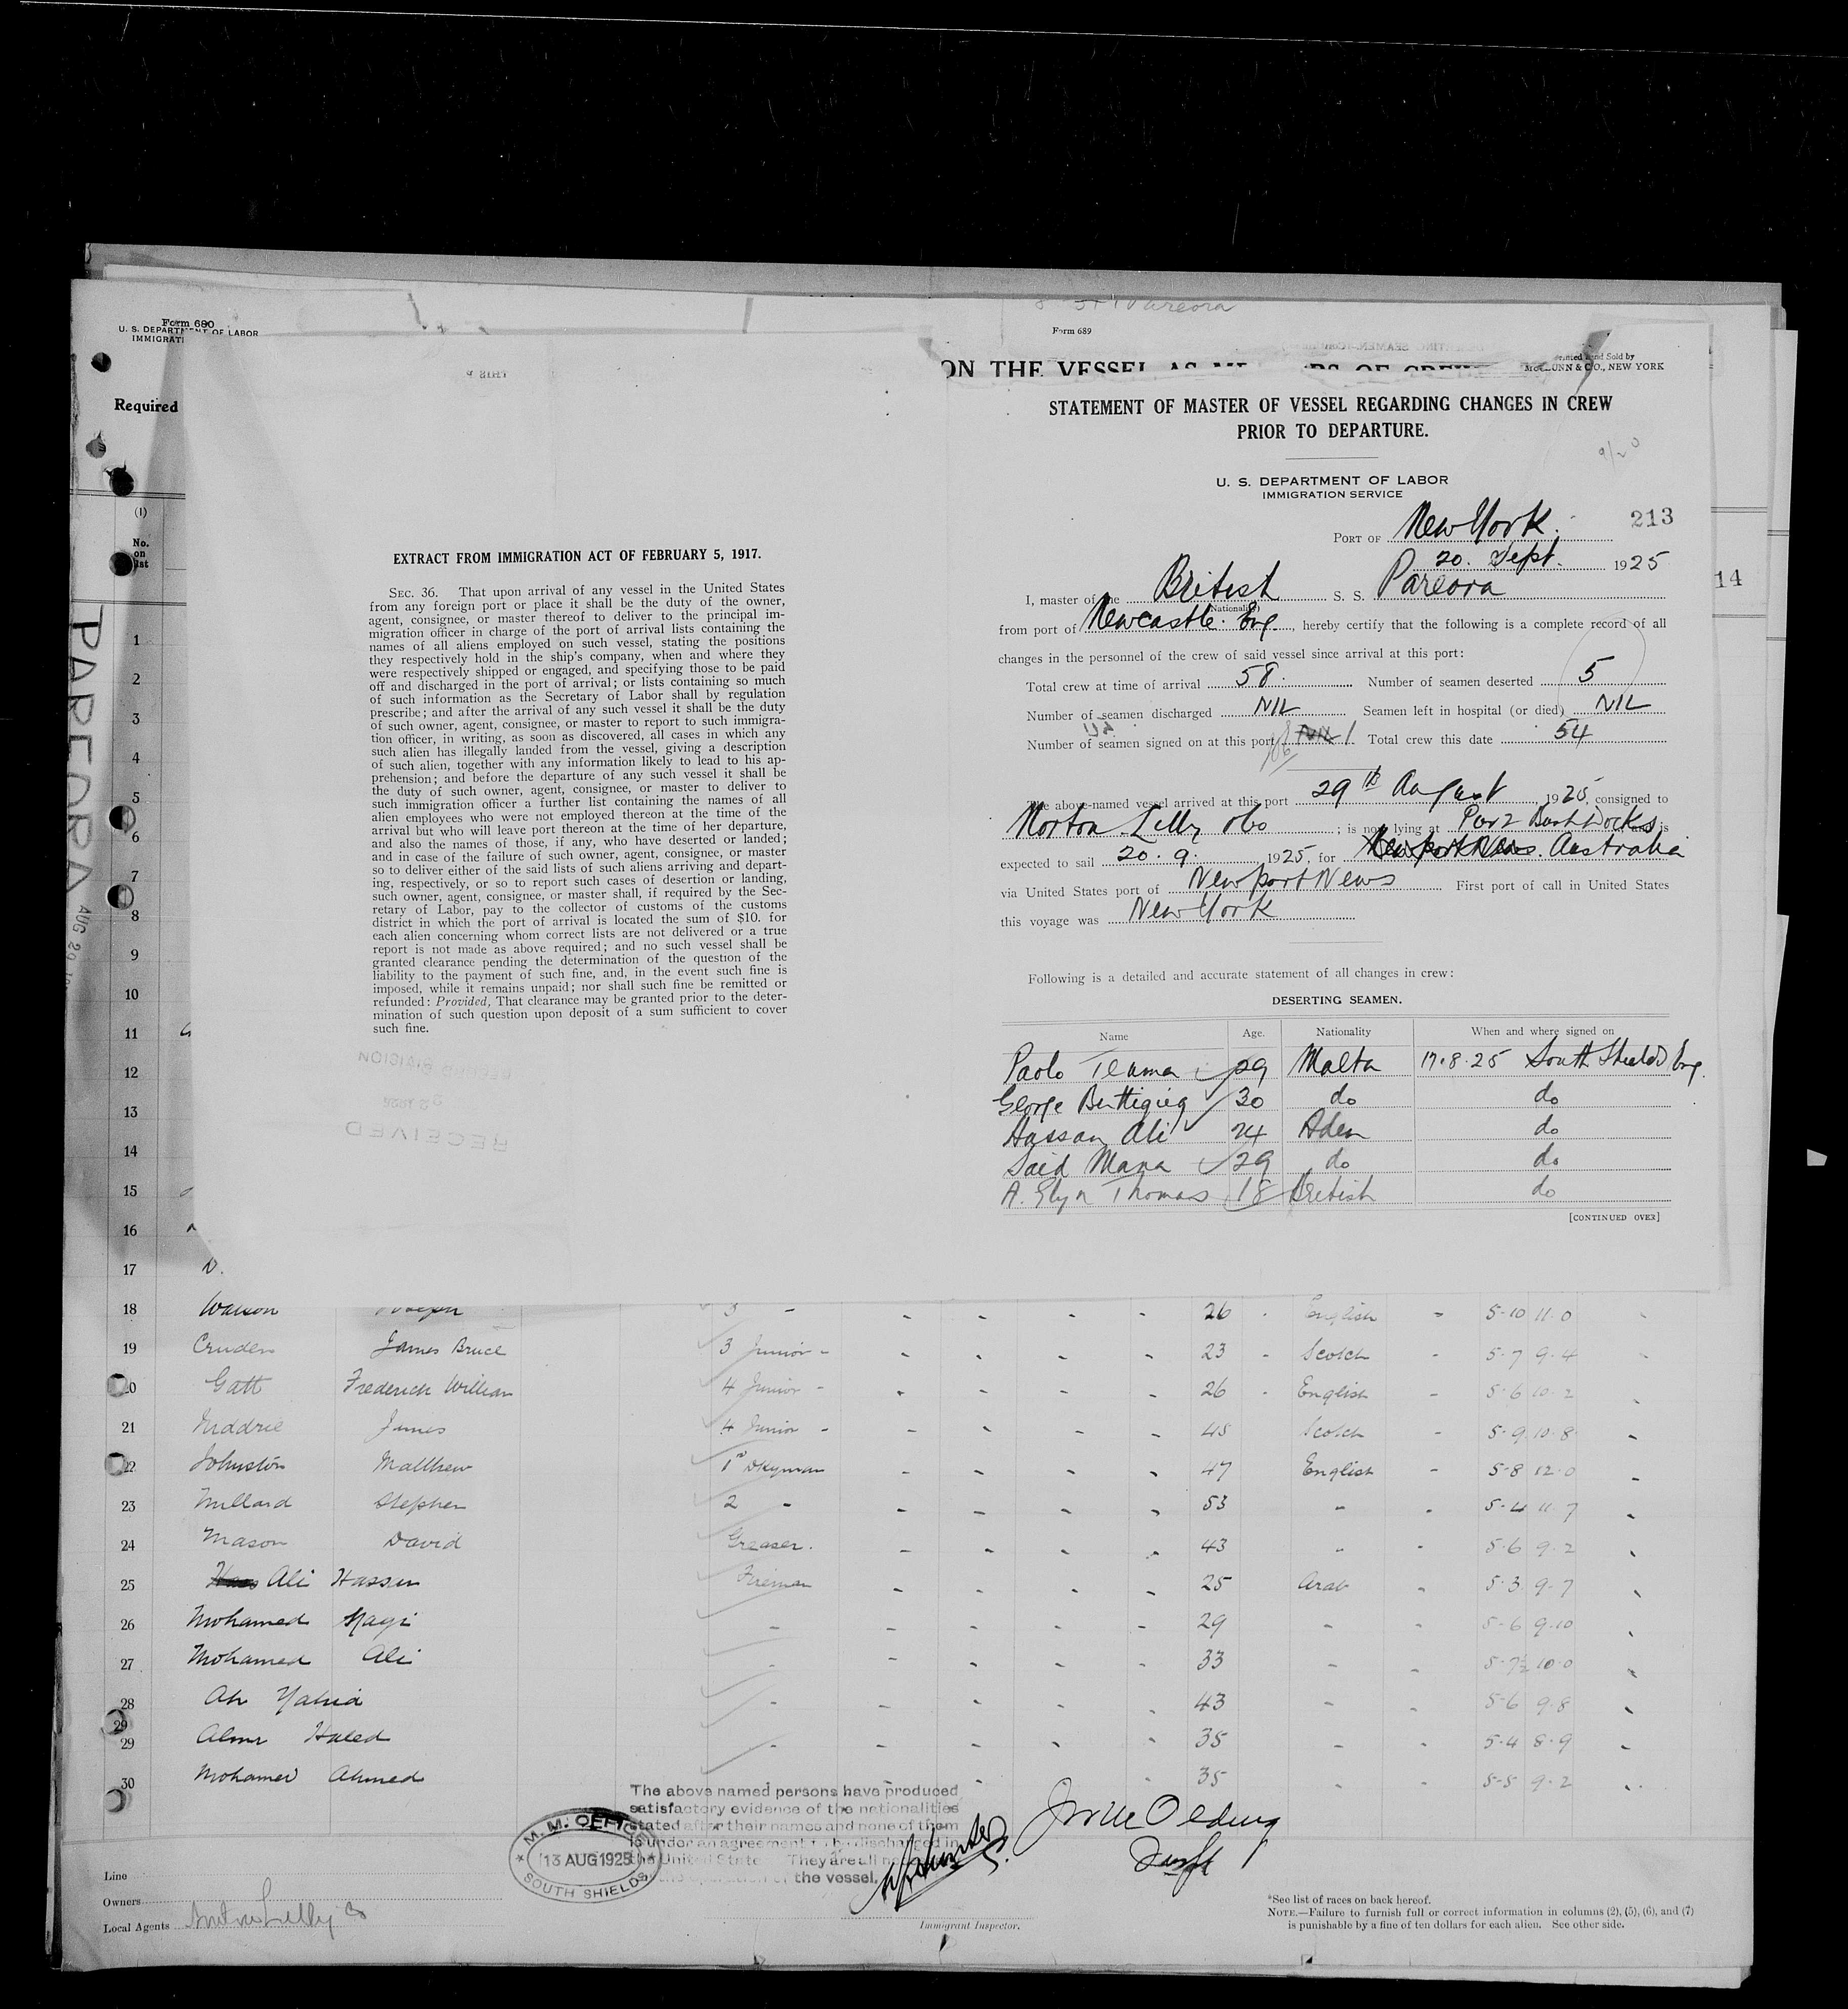 Form 680
U. S. DEPARTMENT OF LABOR
IMMIGRATI
Required
(1)
No.
on
list
PAREORA AUG 29
EXTRACT FROM IMMIGRATION ACT OF FEBRUARY 5, 1917.
SEC. 36. That upon arrival of any vessel in the United States
from any foreign port or place it shall be the duty of the owner,
agent, consignee, or master thereof to deliver to the principal im-
migration officer in charge of the port of arrival lists containing the
names of all aliens employed on such vessel, stating the positions
they respectively hold in the ship's company, when and where they
were respectively shipped or engaged, and specifying those to be paid
off and discharged in the port of arrival; or lists containing so much
of such information as the Secretary of Labor shall by regulation
prescribe; and after the arrival of any such vessel it shall be the duty
of such owner, agent, consignee, or master to report to such immigra-
tion officer, in writing, as soon as discovered, all cases in which any
such alien has illegally landed from the vessel, giving a description
of such alien, together with any information likely to lead to his ap-
prehension; and before the departure of any such vessel it shall be
the duty of such owner, agent, consignee, or master to deliver to
such immigration officer a further list containing the names of all
alien employees who were not employed thereon at the time of the
arrival but who will leave port thereon at the time of her departure,
and also the names of those, if any, who have deserted or landed;
and in case of the failure of such owner, agent, consignee, or master
so to deliver either of the said lists of such aliens arriving and depart-
ing, respectively, or so to report such cases of desertion or landing,
such owner, agent, consignee, or master shall, if required by the Sec-
retary of Labor, pay to the collector of customs of the customs
district in which the port of arrival is located the sum of $10. for
each alien concerning whom correct lists are not delivered or a true
report is not made as above required; and no such vessel shall be
granted clearance pending the determination of the question of the
liability to the payment of such fine, and, in the event such fine is
imposed, while it remains unpaid; nor shall such fine be remitted or
refunded: Provided, That clearance may be granted prior to the deter-
mination of such question upon deposit of a sum sufficient to cover
such fine.
RECEIVED
Pareora
Form 689
ON THE VESSEL AS
Printed and Sold by
& CO., NEW YORK
STATEMENT OF MASTER OF VESSEL REGARDING CHANGES IN CREW
PRIOR TO DEPARTURE.
9/20
U. S. DEPARTMENT OF LABOR
IMMIGRATION SERVICE
PORT OF New York. 213
20. Sept. 1925
14
I, master of the British S. S. Pareora
(Nationality)
from port of Newcastle. Eng, hereby certify that the following is a complete record of all
changes in the personnel of the crew of said vessel since arrival at this port:
Total crew at time of arrival 58. Number of seamen deserted 5
Number of seamen discharged NIL Seamen left in hospital (or died) NIL
Number of seamen signed on at this port NIL 1 Total crew this date 54
The above-named vessel arrived at this port 29th August, 1925, consigned to
Norton Lilly & Co; is now lying at Bush Docks and is
expected to sail 20. 9. 1925, for Newport News. Australia
via United States port of Newport News First port of call in United States
this voyage was New York
Following is a detailed and accurate statement of all changes in crew:
DESERTING SEAMEN.
Name Age. Nationality When and where signed on
Paolo 29 Malta 17.8.25 South Shields Eng.
George Buttigieg 30 do do
Hassan Ali 24 Aden do
Said Mana 29 do do
A. Glyn Thomas 18 British do
[CONTINUED OVER]
1
2
3
4
5
6
7
8
9
10
11
12
13
14
15
16
17
18 Watson Joseph 3 - 26 English 5-10 11.0
19 Cruden James Bruce 3 Junior - 23 Scotch 5-7 9-4
20 Gatt Frederick William 4 Junior - 26 English 5-6 10-2
21 Niddrie James 4 Junior - 45 Scotch 5-9 10-8
22 Johnston Matthew 1st Dkyman 47 English 5-8 12-0
23 Millard Stephen 2 - 53 " 5-4 11-7
24 Mason David Greaser. 43 " 5-6 9-2
25 Ali Hassan Fireman 25 Arab 5-3 9-7
26 Mohamed Nagi - 29 - 5-6 9-10
27 Mohamed Ali - 33 - 5-7½ 10-0
28 Yahid - 43 - 5-6 9-8
29
29 Haled - 35 - 5-4 8-9
30 Mohamed Ahmed 35 - 5-5 9-2
The above named persons have produced
satisfactory evidence of the nationalities
stated after their names and none of them
is under an agreement to be discharged in
the United States They are all
the vessel.
M. M. OFFICE
13 AUG 1925
SOUTH SHIELDS
Line
Owners
Local Agents Norton Lilly & Co
Immigrant Inspector.
*See list of races on back hereof.
NOTE.—Failure to furnish full or correct information in columns (2), (5), (6), and (7)
is punishable by a fine of ten dollars for each alien. See other side.